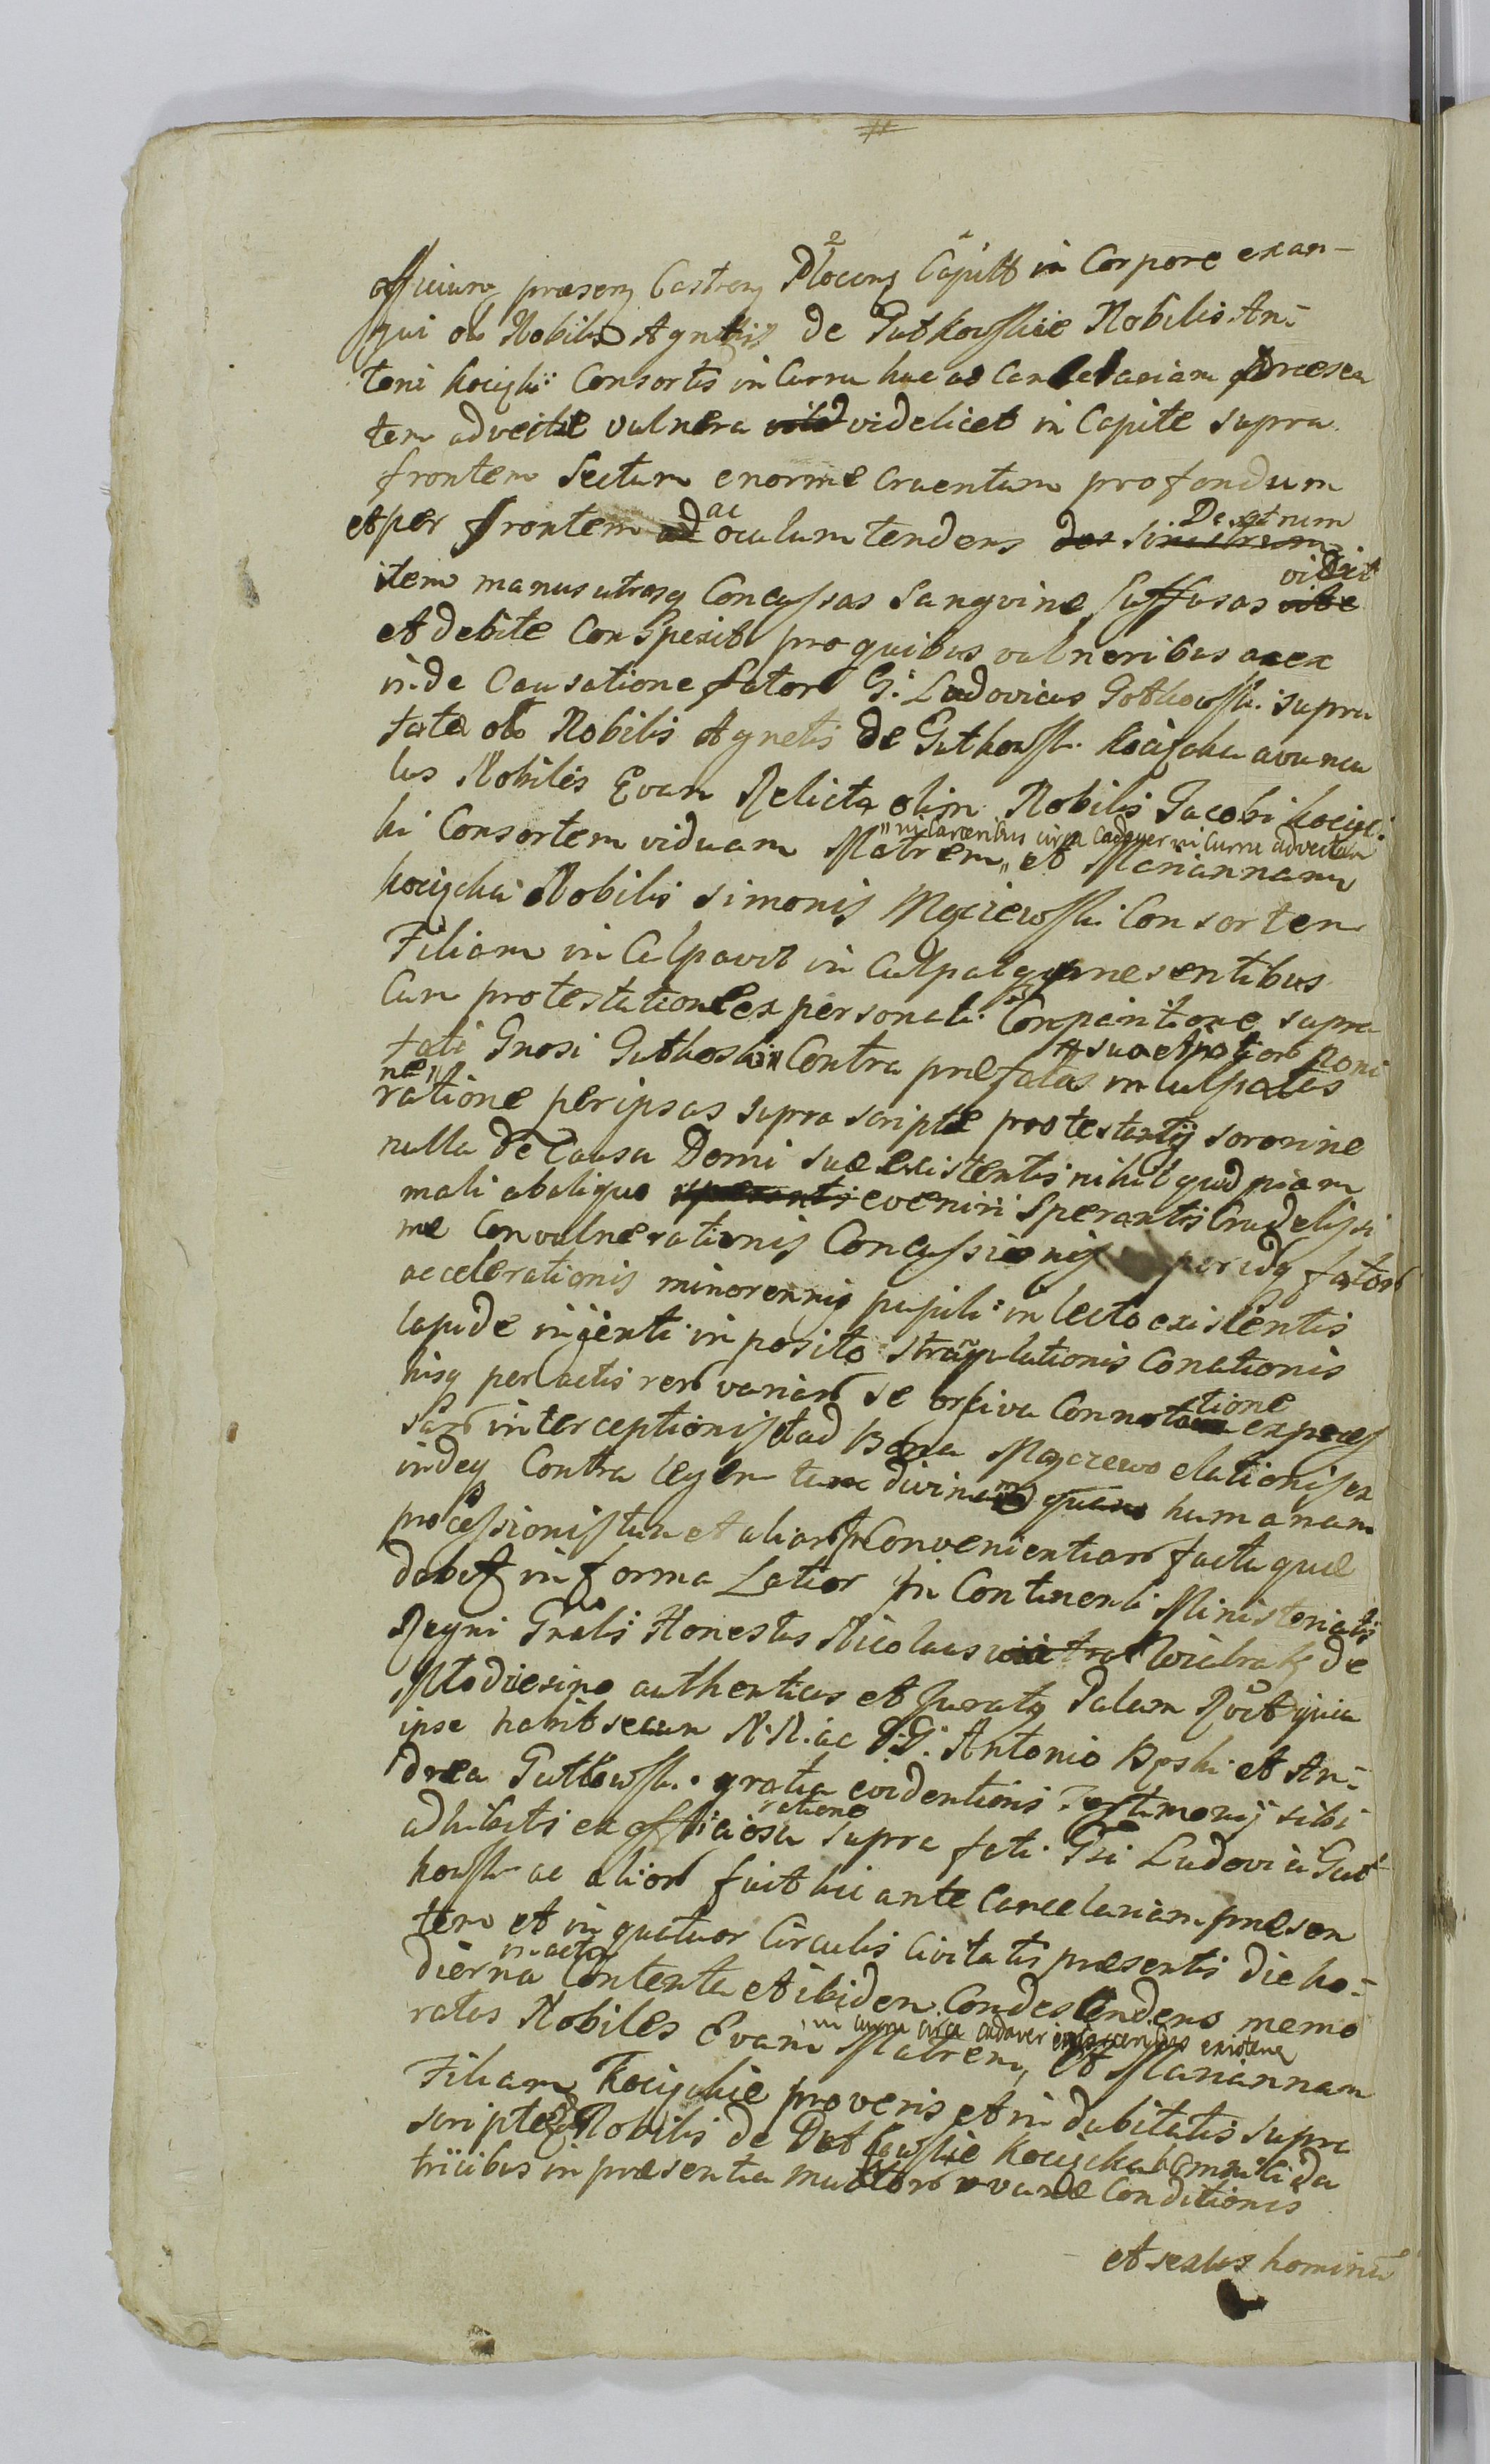 officium praesens Castren Plocens Capitt in Corpore exan-
gui ol Nobilis Agnetis de Gutkowskie Nobilis An-
toni kocięcki Consortis in Curru huc ad Cancelariam praesen
tem advectae vulnera videlicet in Capite supra
frontem Sectum enorme cruentum profondum
et per frontem ad ac oculum tendens des sinistrum Dextrum
item manus utrasq Concussas Sangvine suffusas vidit
et debite Conspexit pro quibus vulneribus ac ex
inde Causatione fator G. Ludovicus Gotkowski supra
fatae ol Nobilis Agnetis de Gutkowski kocięcka avuncu
lus Nobiles Evam Relictā olim Nobilis Jacobi kocięc
ki Consortem viduam Matrem „ in Carceribus circa Cadaver in Curru advectam „ et Mariannam
kocięcka Nobilis Simonis Mączewski Consortem
Filiam in Culpavit in Culpatq praesentibus
Cum protestatione ex personali Comparitione supra
fati Gnosi Gutkoski Contra praefatas in culpatas sua et patior nomi
ne „
ratione per ipsas supra scriptae protestantis sororinae
nulla de Causa Domi suae existentis nihil quidpiam
mali ab aliquo sperantis eveniri Sperantis Crudelissi
mae Convulnerationis Concussionis per idq fator
accelerationis minorennis pupili in lecto existentis
lapide injenti in posito strangulationis Conationis
hisq peractis rer variar se orsiva Connotatione express
sar interceptionis et ad Bona Mączewo elationis ex
indeq Contra legem tam divinam quam humanam
processionis tum et aliar Convenientiar facti quae
dabit in forma Latior In Continenti Ministerialis
Regni Gnalis Honestus Nicolaus Wiétrak de
Młodziesino authenticus et Juratq Palam Rvit quia
ipse habit secum N.N. ac G.G. Antonio Bęski et An-
drea Gutkowski gratia evidentioris Testimonij sibi
adhibitis ex officiosa ratione supra fati Gsi Ludovici Gut
kowski ac alior fuit hic ante Cancelariam praesen
tem et in quatuor Circulis Civitatis praesentis die ho-
dierna in actu Contenta et ibidem Condescendens memo
ratas Nobiles Evam Matrem in curru circa cadaver in Carceribus existenq et Mariannam
Filiam Kocięckie pro veris et in dubitatis supra
scriptae Nobilis de Gutkowskie Kocięcka homicida
tricibus in praesentia multor variae Conditionis
et sexus hominū